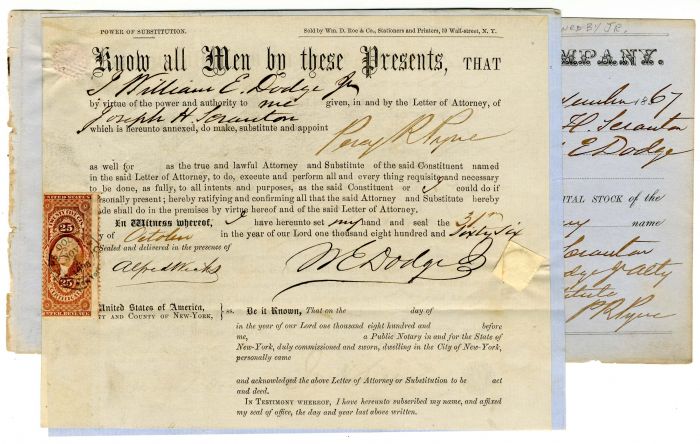 POWER OF SUBSTITUTION. Sold by Wm. D. Roe & Co., Stationers and Printers, 19 Wall-street, N. Y.
Know all Men by these Presents, THAT
I William E. Dodge Jr
by virtue of the power and authority to me given, in and by the Letter of Attorney, of
Joseph H. Scranton
which is hereunto annexed, do make, substitute and appoint
Percy R Pyne
as well for as the true and lawful Attorney and Substitute of the said Constituent named
in the said Letter of Attorney, to do, execute and perform all and every thing requisite and necessary
to be done, as fully, to all intents and purposes, as the said Constituent or I could do if
personally present; hereby ratifying and confirming all that the said Attorney and Substitute hereby
made shall do in the premises by virtue hereof and of the said Letter of Attorney.
In Witness whereof, I have hereunto set my hand and seal the 31st
y of October in the year of our Lord one thousand eight hundred and Sixty Six
Sealed and delivered in the presence of
Alfred Weeks
W E Dodge Jr
25
25
INTER. REVENUE
United States of America,
TY AND COUNTY OF NEW-YORK,
ss. Be it Known, That on the day of
in the year of our Lord one thousand eight hundred and before
me, a Public Notary in and for the State of
New-York, duly commissioned and sworn, dwelling in the City of New-York,
personally came
and acknowledged the above Letter of Attorney or Substitution to be act
and deed.
IN TESTIMONY WHEREOF, I have hereunto subscribed my name, and affixed
my seal of office, the day and year last above written.
NED BY JR.
OMPANY.
1867
H. Scranton
E Dodge
ITAL STOCK of the
name
Scranton
dge Jr Atty
P R Pyne